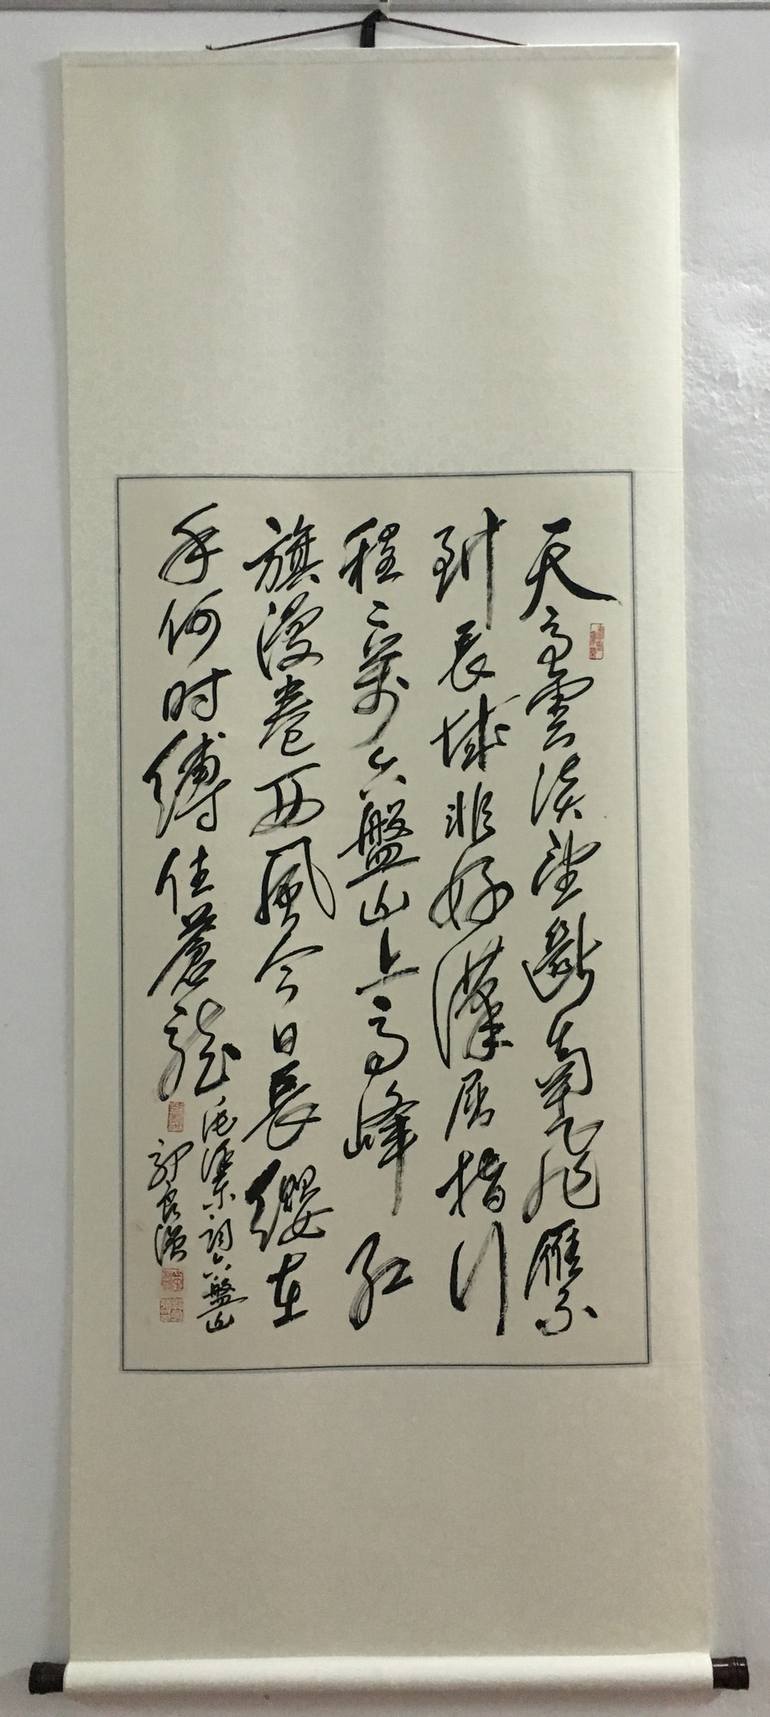 天高雲淡望斷南飛雁不
到長城非好漢屈指行
程二萬六盤山上高峰紅
旗漫卷西風今日長纓在
手何時縛住蒼龍
毛澤東詞六盤山
郭良漢